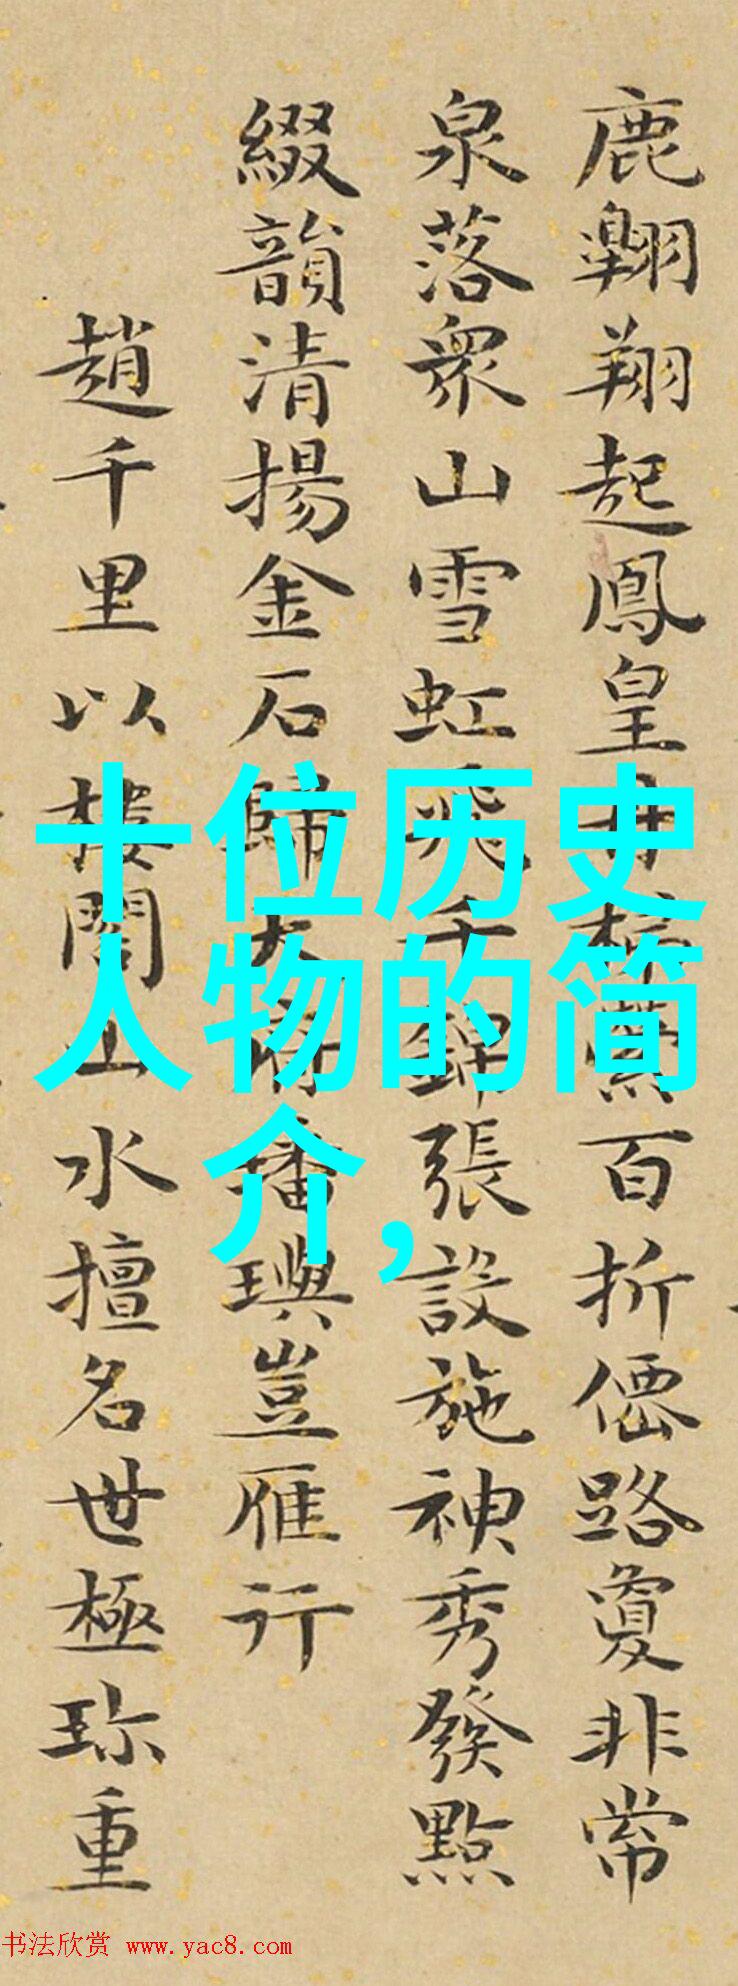 鹿翱翔起鳳皇
百折僊路夐非常
泉落衆山雪虹飛千錦張設施神秀發點
綴韻清揚金石歸大
播璵豈雁行
趙千里以樓閣山水擅名世極珎重
十位历史
人物的简
介,
书法欣赏 www.yac8.com